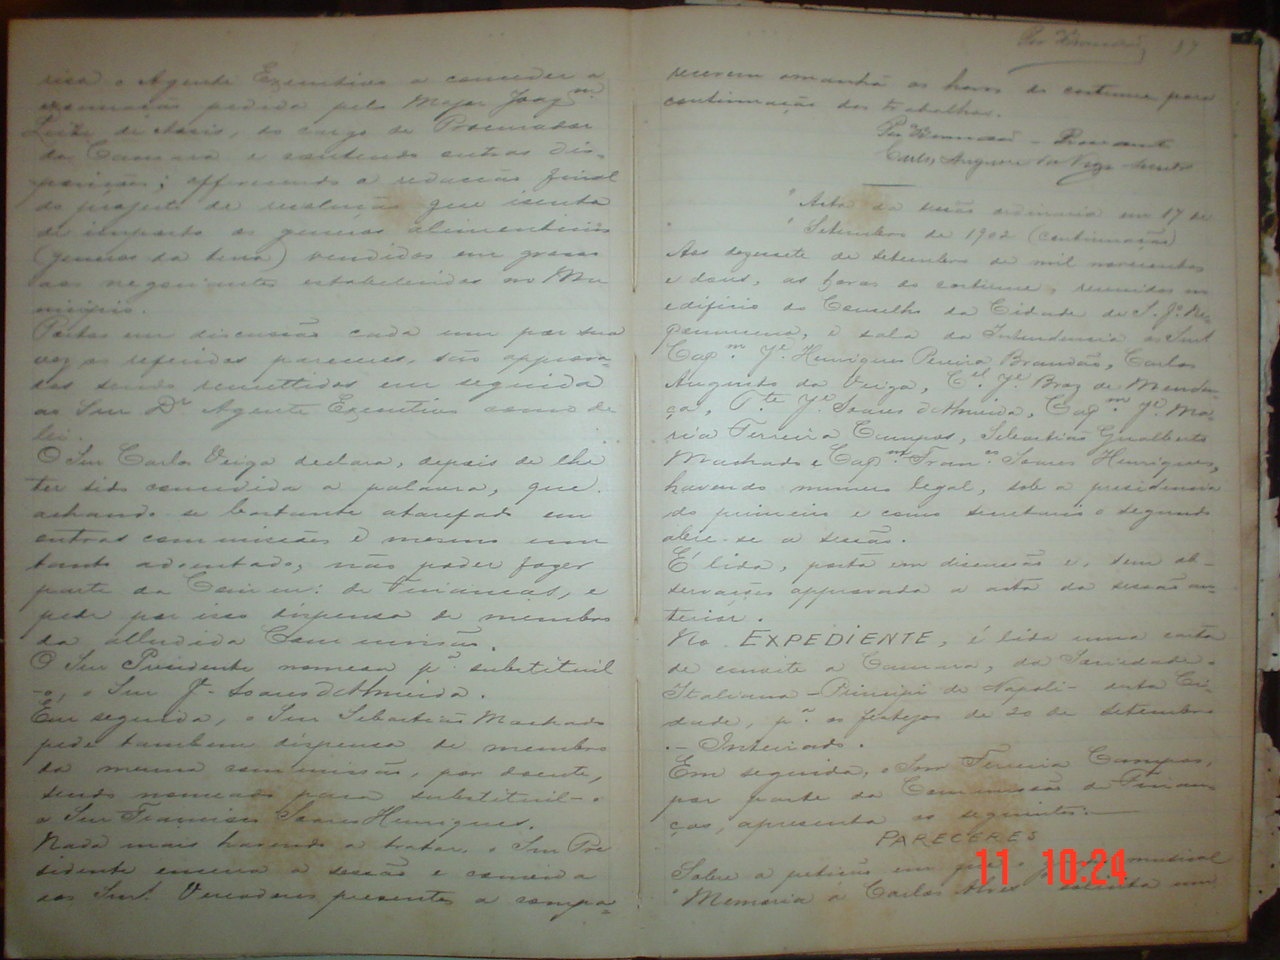 risa o Agente Executivo a conceder a
exoneração pedida pelo Major Joaqm.
Leite de Assis, do cargo de Procurador
da Camara e contendo outras dis-
posições; offerecendo a redacção final
do projecto de resolução que isenta
de imposto os generos alimenticios
(generos da terra) vendidos em grosso
aos negociantes estabelecidos no Mu
nicipio.
Postos em discussão cada um por sua
vez os referidos pareceres, são approva-
dos sendo remettidos em seguida
ao Snr Dr. Agente Executivo como de
lei.
O Snr Carlos Veiga declara, depois de lhe
ter sido concedida a palavra, que
achando-se bastante atarefado em
outras commissões e mesmo um
tanto adoentado, não poder fazer
parte da Comm: de Finanças, e
pede por isso dispensa de membro
da alludida Commissão.
O Snr Presidente nomeia pa. substituil
-o, o Snr Je. Soares d'Almeida.
Em seguida, o Snr Sebastião Machado
pede tambem dispensa de membro
da mesma commissão, por doente,
sendo nomeado para substituil-o
o Snr Francisco Soares Henriques.
Nada mais havendo a tratar, o Snr Pre
sidente encerra a sessão e convida
aos Snrs. Vereadores presentes a compa-
Per Brandão 17
recerem amanhã as horas do costume para
continuação dos trabalhos.
Per Brandão -
Carlos Augusto da Veiga
"Acta da sessão ordinaria em 17 de
" Setembro de 1902 (continuação)
Aos dezesete de setembro de mil novecentos
e dous, as horas do costume, reunidos no
edificio do Conselho da Cidade de S. Jo. Ne-
pomuceno, e sala da Intendencia os Snrs
Capm. Je. Henriques Pereira Brandão, Carlos
Augusto da Veiga, Cel. Je. Braz de Mendon-
ça, Tte. Je. Soares d'Almeida, Capm. Je. Ma-
ria Ferreira Campos, Sebastião Gualberto
Machado e Capm. Franco. Soares Henriques,
havendo numero legal, sob a presidencia
do primeiro e como secretario o segundo
abre-se a sessão.
É lida, posta em discussão e, sem ob-
servações approvada a acta da sessão an-
terior.
No EXPEDIENTE, é lida uma carta
de convite a Camara, da Sociedade
Italiana - Principi di Napoli - desta Ci-
dade, pa. os festejos de 20 de setembro
. - Inteirado.
Em seguida, o Snr Ferreira Campos,
por parte da Commissão de Finan-
ças, apresenta os seguintes:
PARECERES
Sobre a petição em que o musical
"Memoria á Carlos Alves" solicita um
11 10:24